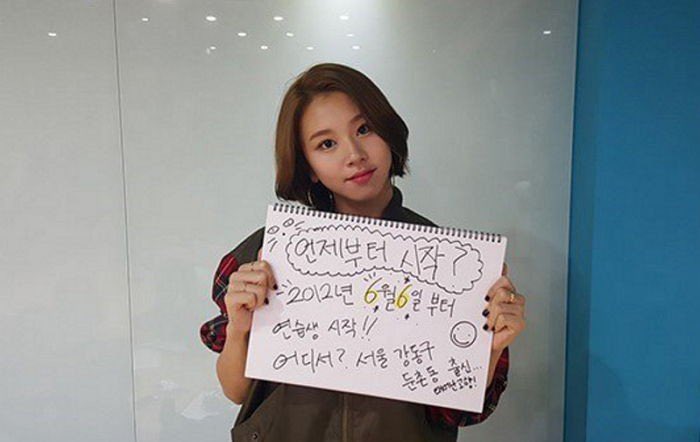 언제부터 시작?
2012년 6월6일 부터
연습생 시작!!
어디서? 서울 강동구
둔촌동 출신...